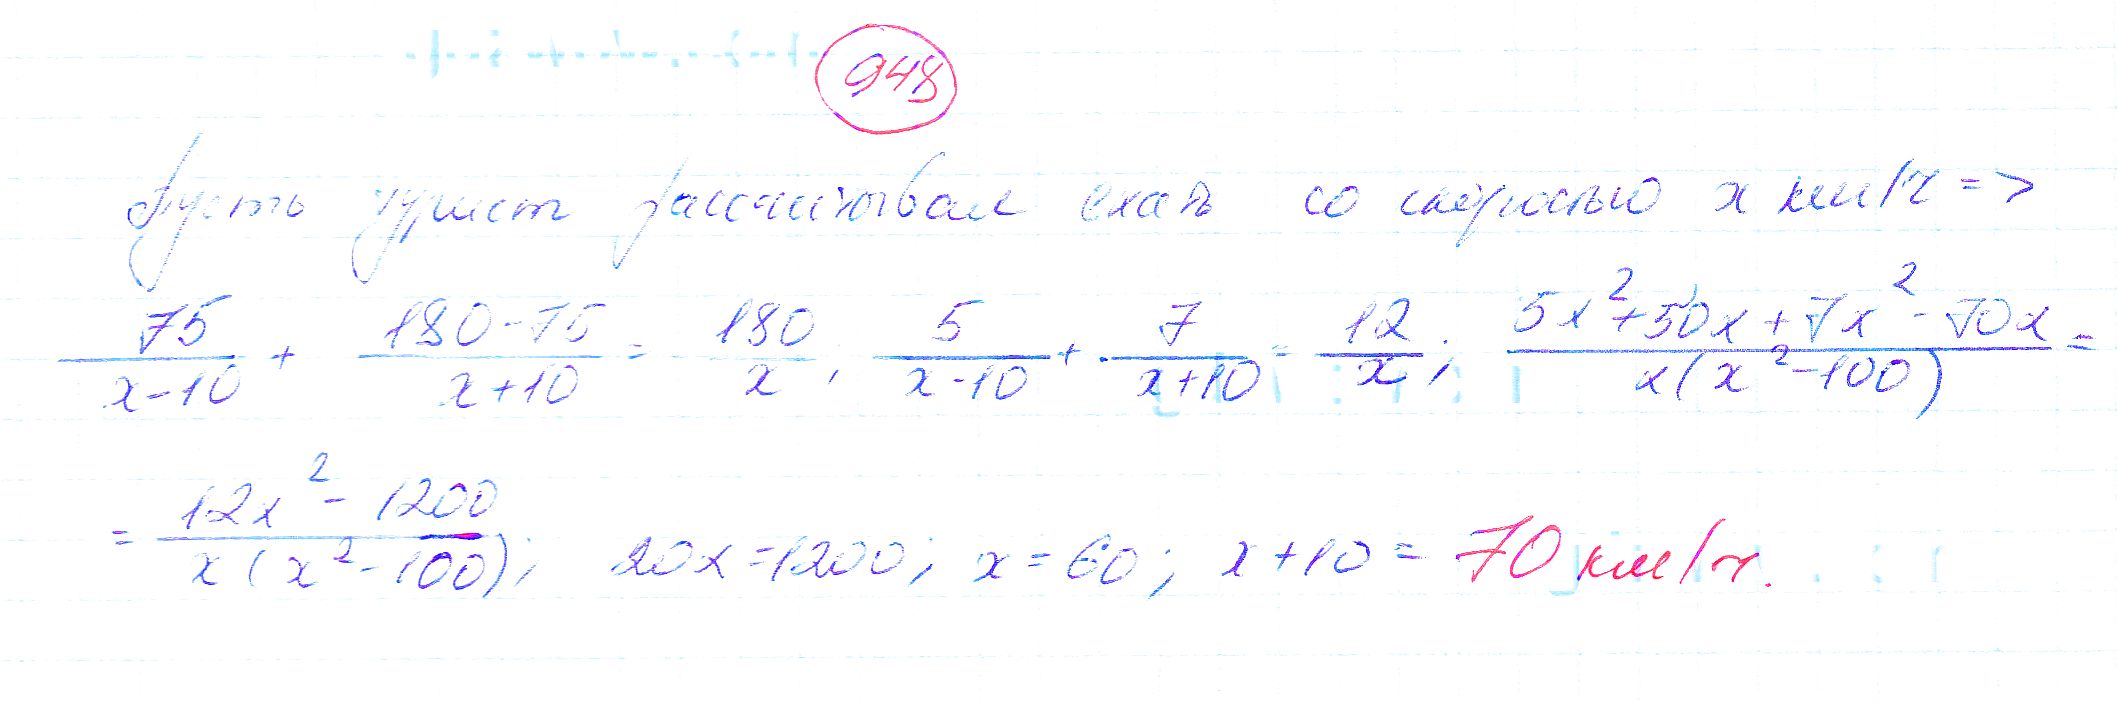 948
Пусть турист рассчитывал ехать со скоростью x км/ч =>
75/(x-10) + (180-75)/(x+10) = 180/x; 5/(x-10) + 7/(x+10) = 12/x; (5x²+50x+7x²-70x)/(x(x²-100)) =
= (12x²-1200)/(x(x²-100)); 20x=1200; x=60; x+10= 70 км/ч.